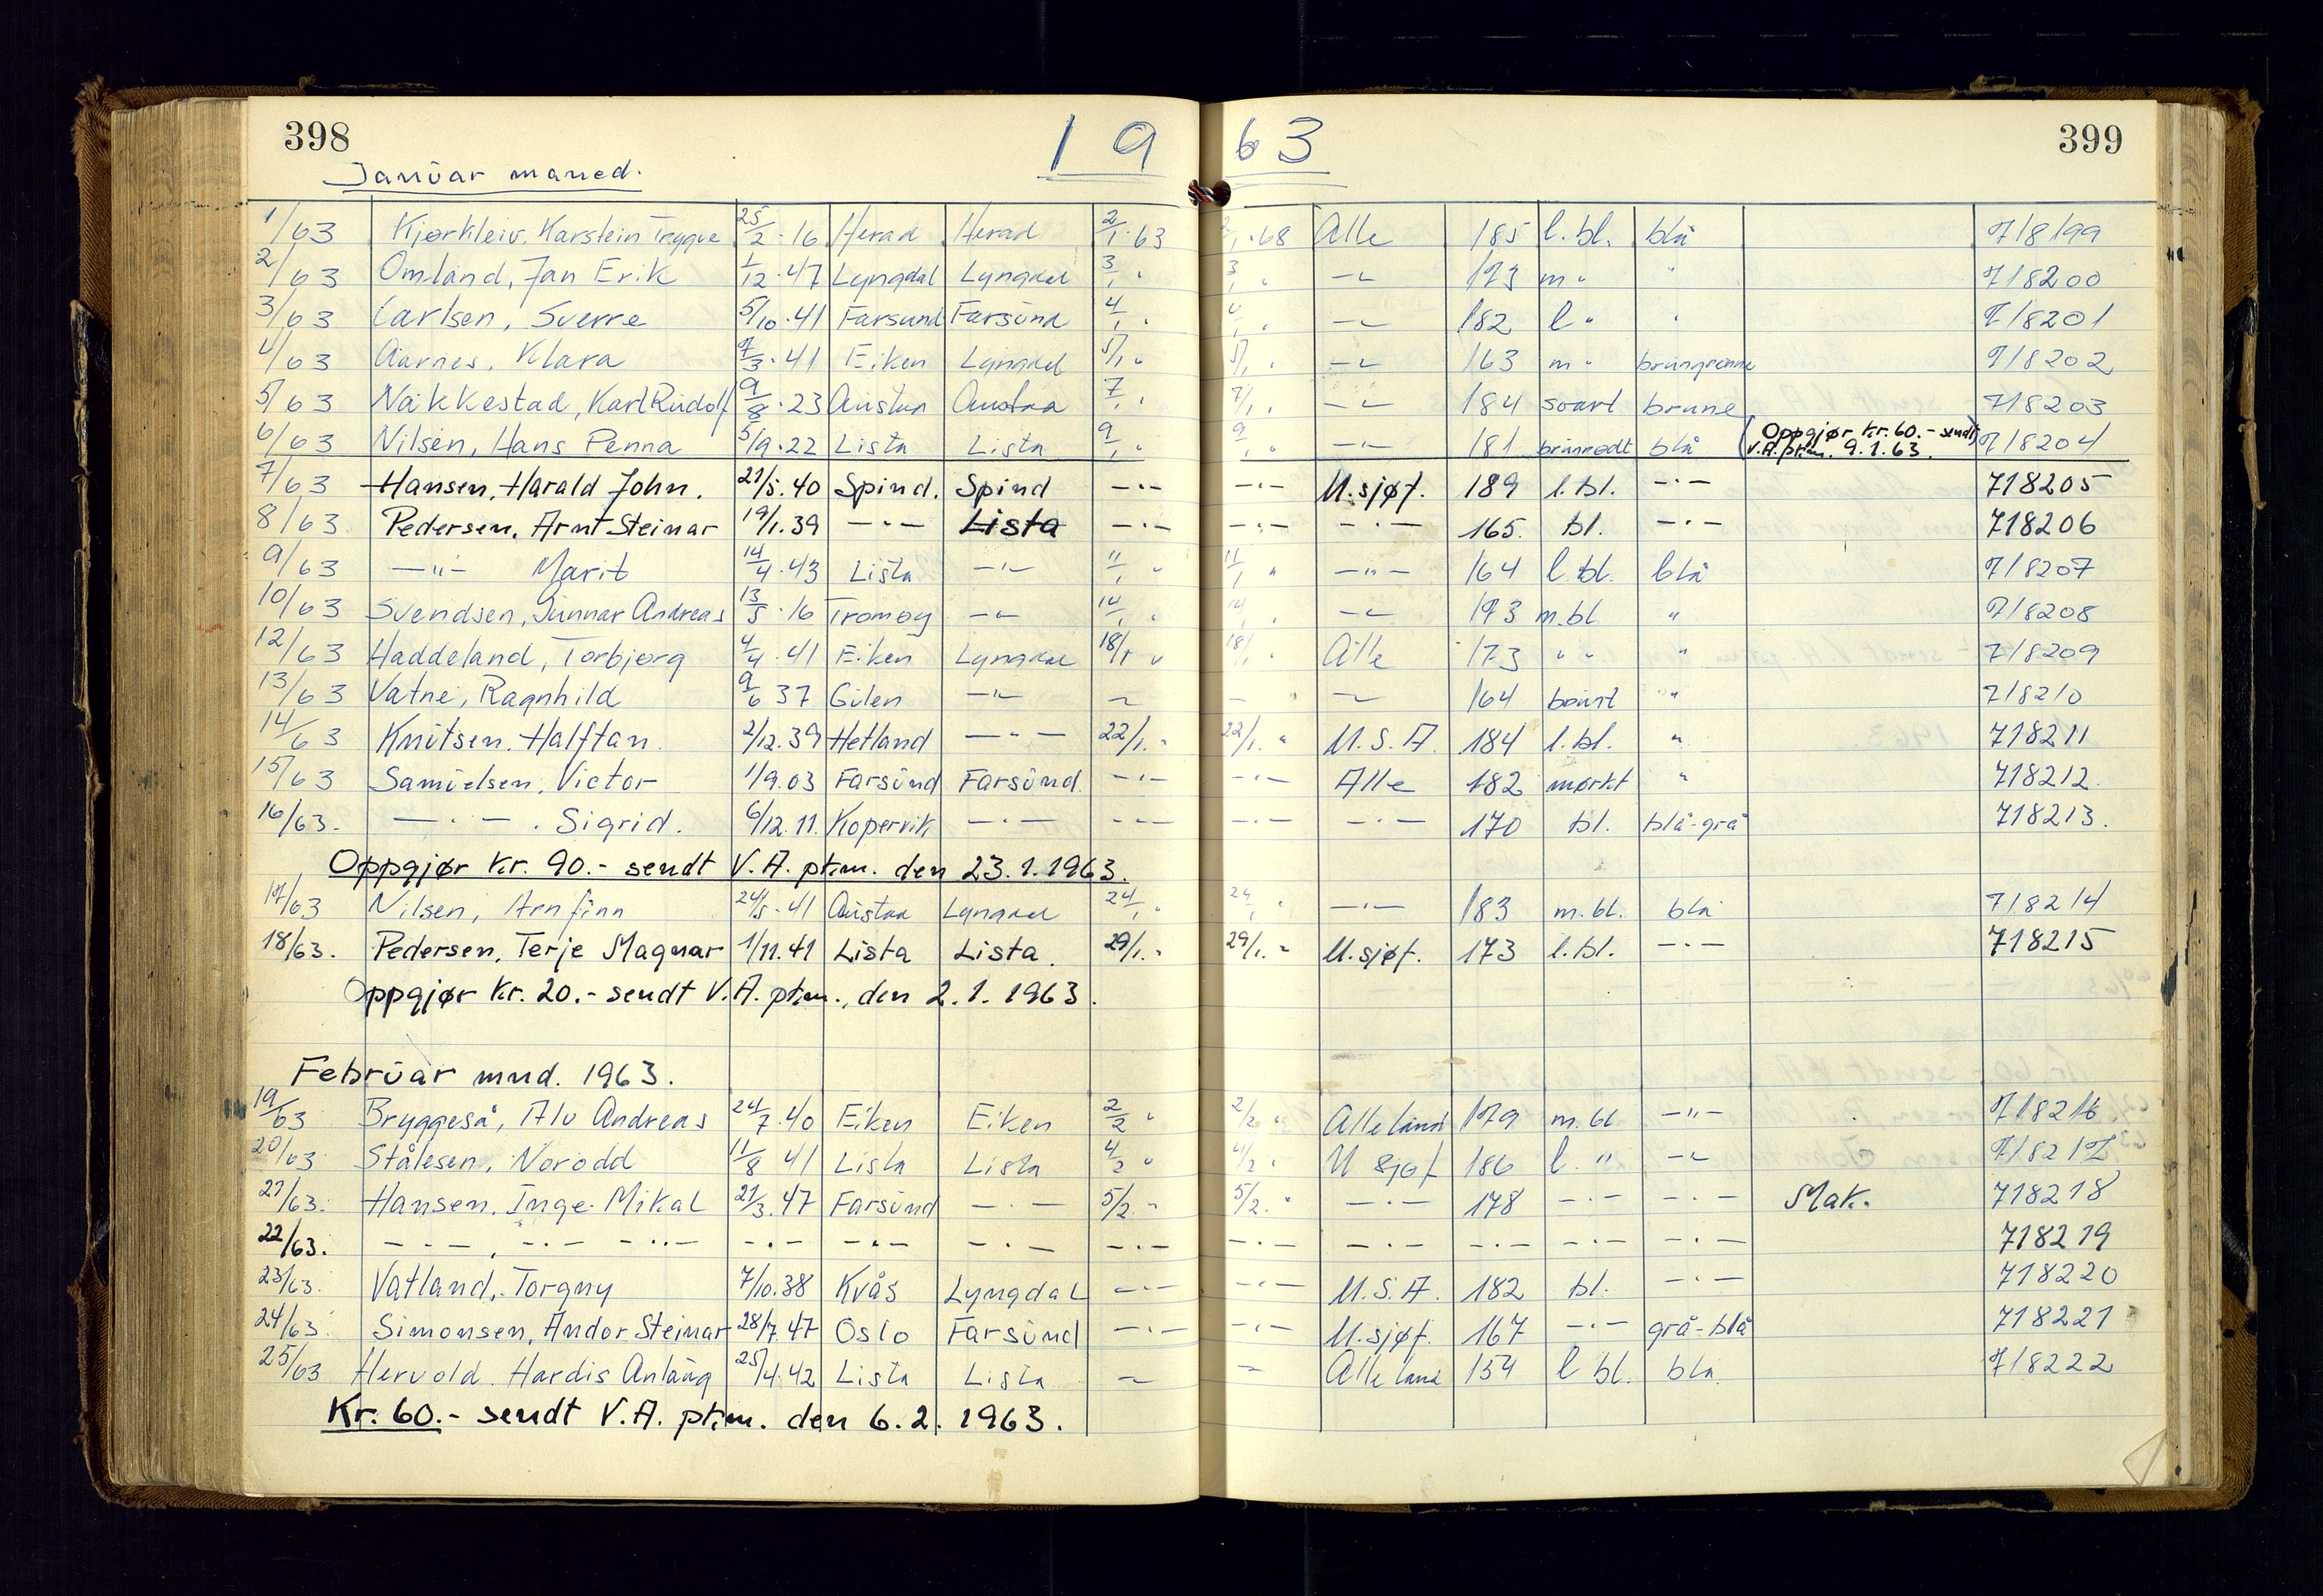 398 1963 399
Januar maned.
1/63 Kjørkleiv, Karstein Trygve 25/2.16 Herad Herad 2/1.63 2/1.68 Alle 185 l.bl. blå 718199
2/63 Omland, Jan Erik 1/12.47 Lyngdal Lyngdal 3/1 " 3/1 " —"— 173 m " " 718200
3/63 Carlsen, Sverre 5/10.41 Farsund Farsund 4/1 " 4/1 " —"— 182 l " " 718201
4/63 Aarnes, Klara 7/3.41 Eiken Lyngdal 5/1 " 5/1 " —"— 163 m " brungrønne 718202
5/63 Nakkestad, Karl Rudolf 9/8.23 Austad Austad 7/1 " 7/1 " —"— 184 svart brune 718203
6/63 Nilsen, Hans Penna 5/9.22 Lista Lista 9/1 " 9/1 " —"— 181 brunrødt blå (Oppgjør kr. 60.- sendt V.A. ptm. 9.1.63.) 718204
7/63 Hansen, Harald John. 21/5.40 Spind. Spind —"— —"— U.sjøf. 189 l.bl. —"— 718205
8/63 Pedersen, Arnt Steinar 19/1.39 —"— Lista —"— —"— —"— 165. bl. —"— 718206
9/63 —"— Marit 14/4.43 Lista —"— 11/1 " 11/1 " —"— 164 l.bl. blå 718207
10/63 Svendsen, Gunnar Andreas 13/5.16 Tromøy —"— 14/1 " 14/1 " —"— 173 m.bl " 718208
12/63 Haddeland, Torbjørg 4/4.41 Eiken Lyngdal 18/1 " 18/1 " Alle 173 " " " 718209
13/63 Vatne, Ragnhild 9/6 37 Gulen —"— — — — 164 brunt " 718210
14/63 Knutsen, Halftan. 2/12.39 Hetland —"— 22/1. " 22/1. " U.S.A. 184 l.bl. " 718211
15/63 Samuelsen, Victor 1/9.03 Farsund Farsund. —"— —"— Alle 182 mørkt " 718212.
16/63. —"— . Sigrid. 6/12.11. Kopervik —"— —"— —"— —"— 170 bl. blå-grå 718213.
Oppgjør kr. 90.- sendt V.A. ptm. den 23.1.1963.
17/63 Nilsen, Arnfinn 24/5.41 Austad Lyngdal 24/1 " 24/1 " —"— 183 m.bl. blå 718214
18/63. Pedersen, Terje Magnar 1/11.41 Lista Lista. 29/1. " 29/1. " U.sjøf. 173 l.bl. —"— 718215
Oppgjør kr. 20.- sendt V.A. ptm., den 2.1.1963.
Februar mnd. 1963.
19/63 Bryggeså, Alv Andreas 24/7.40 Eiken Eiken 2/2 " 2/2 " Alle land 179 m.bl —"— 718216.
20/63 Stålesen, Norodd 11/8 41 Lista Lista 4/2 " 4/2 " U sjøf 186 l. " —"— 718217
21/63. Hansen, Inge Mikal 21/3.47 Farsund —"— 5/2. " 5/2. " —"— 178 —"— —"— Mak. 718218
22/63. —"—, —"— —"— —"— —"— —"— —"— —"— —"— —"— —"— —"— 718219
23/63. Vatland, Torgny 7/10.38 Kvås Lyngdal —"— —"— U.S.A. 182 bl. —"— 718220
24/63. Simonsen, Andor Steinar 28/7.47 Oslo Farsund —"— —"— U.sjøf. 167 —"— grå-blå 718221
25/63 Hervold Hardis Anlaug 25/4.42 Lista Lista — — Alle land 154 l bl. blå 718222
Kr. 60.- sendt V.A. ptm. den 6.2.1963.